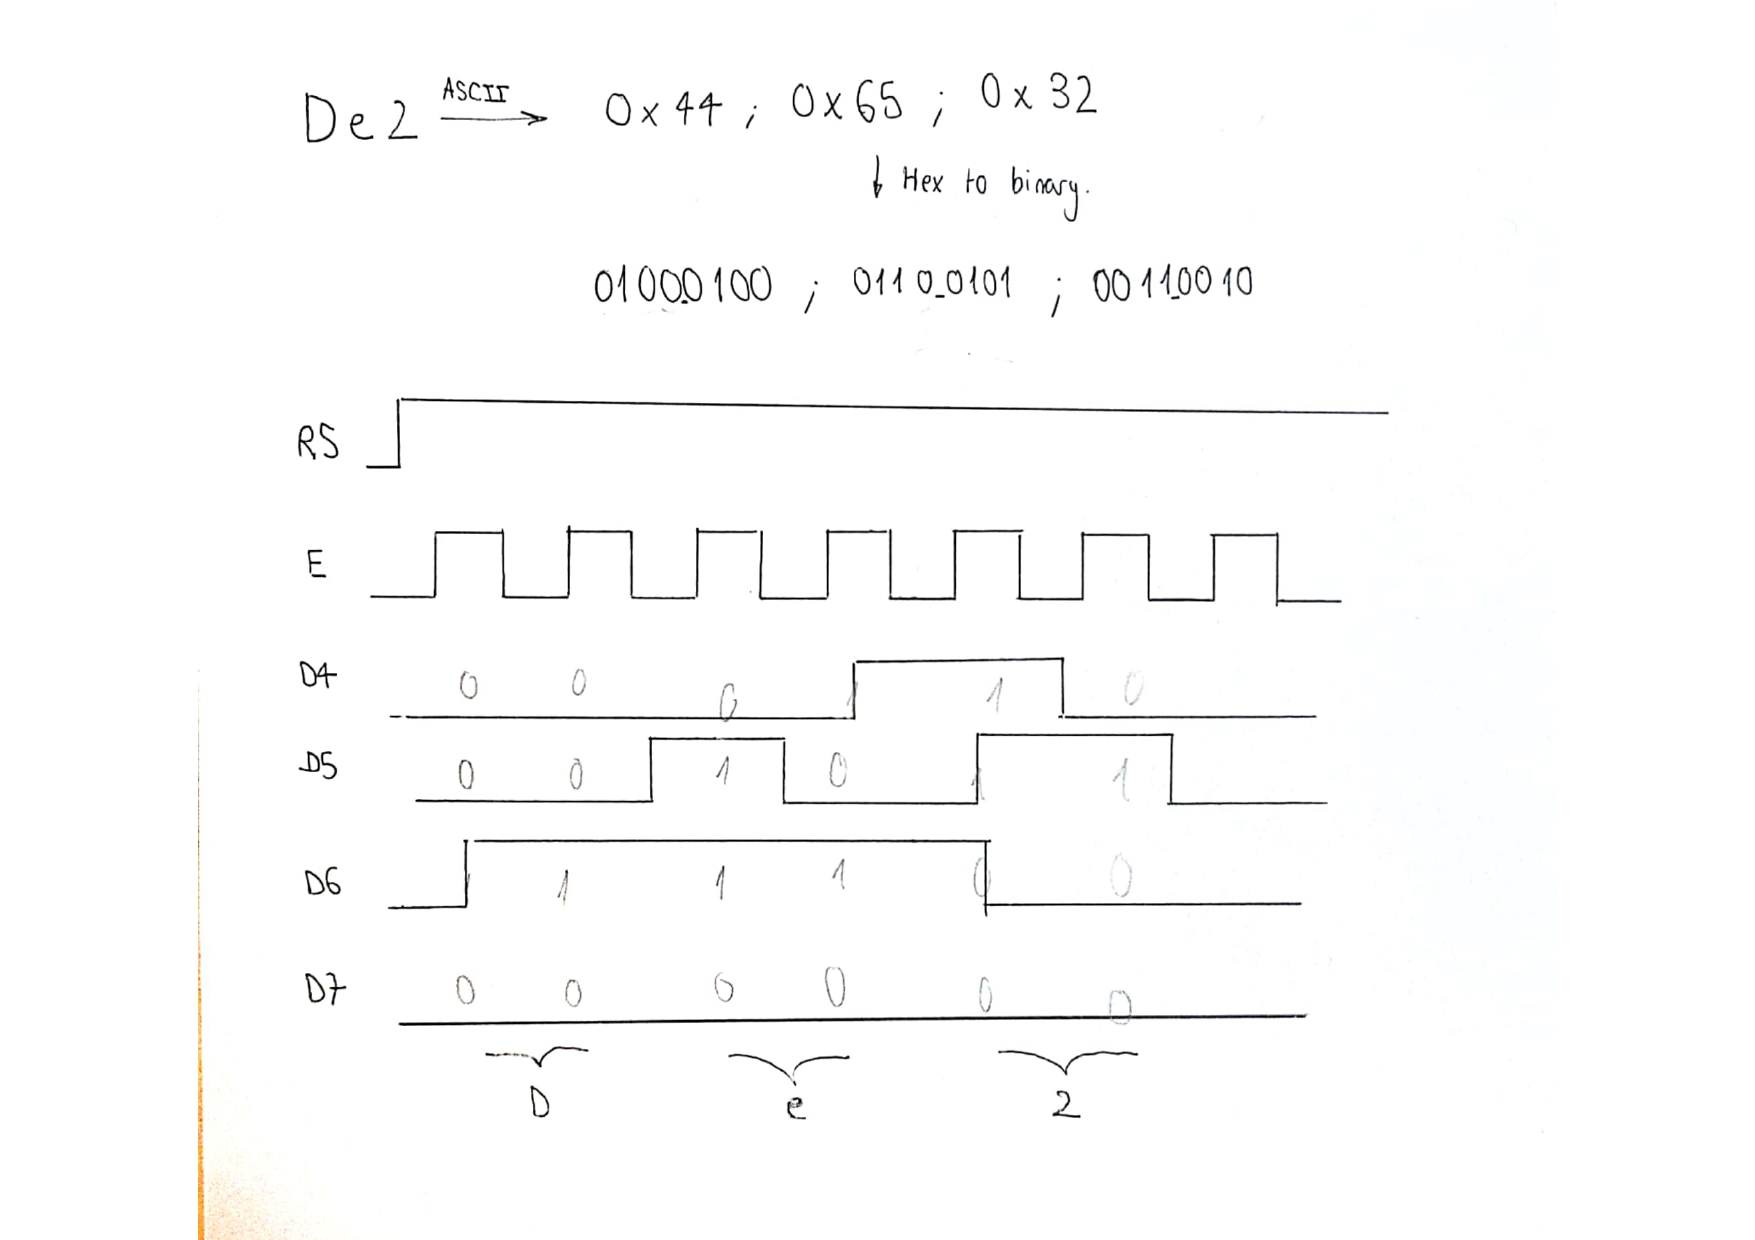 De2 ASCII → 0x44 ; 0x65 ; 0x32
↓ Hex to binary.
0100_0100 ; 0110_0101 ; 0011_0010
RS
E
D4 0 0 0 1 1 0
D5 0 0 1 0 1 1
D6 1 1 1 1 0 0
D7 0 0 0 0 0 0
D e 2